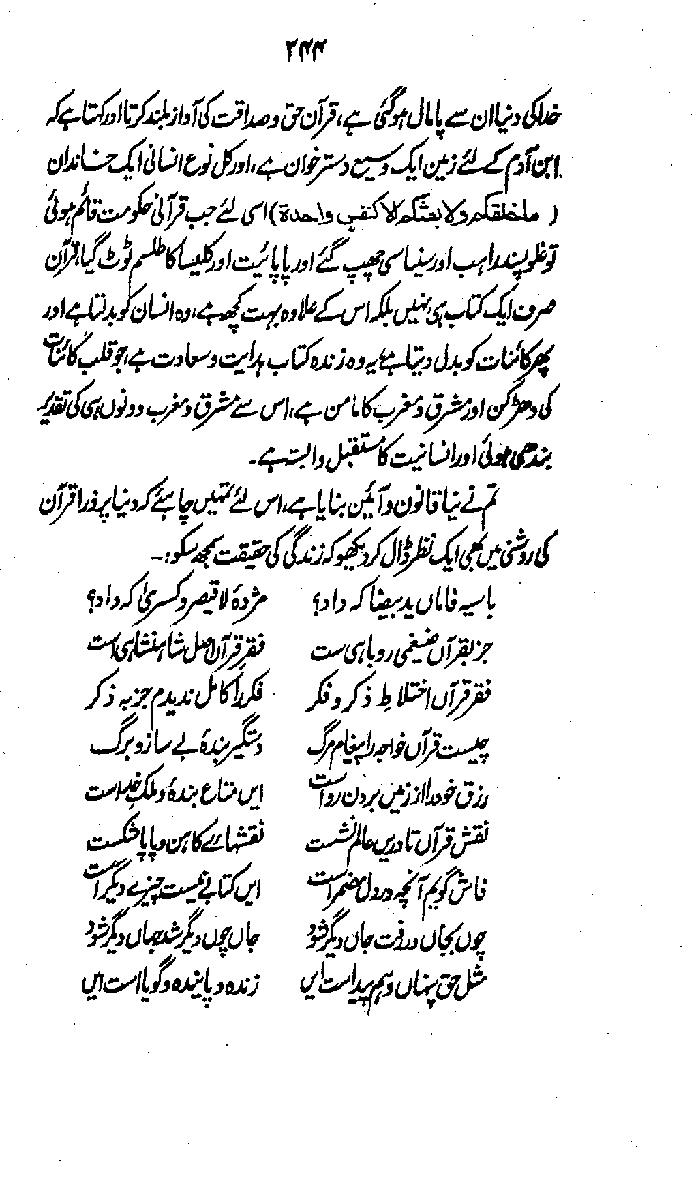 ۲۴۴
خدا کی دنیا ان سے پامال ہو گئی ہے، قرآن حق و صداقت کی آواز بلند کرتا اور کہتا ہے کہ
ابن آدم کے لئے زمین ایک وسیع دسترخوان ہے، اور کل نوع انسانی ایک خاندان
(ماخلقکم ولا بعثکم الا کنفس واحدۃ) اسی لئے جب قرآنی حکومت قائم ہوئی
تو غلو پسند راہب اور سنیاسی چھپ گئے اور پاپائیت اور کلیسا کا طلسم ٹوٹ گیا، قرآن
صرف ایک کتاب ہی نہیں بلکہ اس کے علاوہ بہت کچھ ہے، وہ انسان کو بدلتا ہے اور
پھر کائنات کو بدل دیتا ہے یہ وہ زندہ کتاب ہدایت و سعادت ہے، جو قلب کائنات
کی دھڑکن اور مشرق و مغرب کا مامن ہے، اس سے مشرق و مغرب دونوں ہی کی تقدیر
بندھی ہوئی اور انسانیت کا مستقبل وابستہ ہے۔
تم نے نیا قانون و آئین بنایا ہے، اس لئے تمہیں چاہئے کہ دنیا پر ذرا قرآن
کی روشنی میں بھی ایک نظر ڈال کر دیکھو کہ زندگی کی حقیقت سمجھ سکو:۔
با سیہ فاماں ید بیضا کہ داد؟ مژدۂ لا قیصر و کسریٰ کہ داد؟
جز بقرآں ضیغمی روباہی ست فقر قرآں اصل شاہنشاہی است
فقر قرآں اختلاط ذکر و فکر فکر را کامل ندیدم جز بہ ذکر
چیست قرآں خواجہ را پیغام مرگ دستگیر بندۂ بے ساز و برگ
رزق خود را از زمیں بردن رواست ایں متاع بندہ و ملک خداست
نقش قرآں تا دریں عالم نشست نقشہائے کاہن و پاپا شکست
فاش گویم آنچہ در دل مضمر است ایں کتابے نیست چیزے دیگر است
چوں بجاں در رفت جاں دیگر شود جاں چوں دیگر شد جہاں دیگر شود
مثل حق پنہاں و ہم پیداست ایں زندہ و پایندہ و گویا است ایں